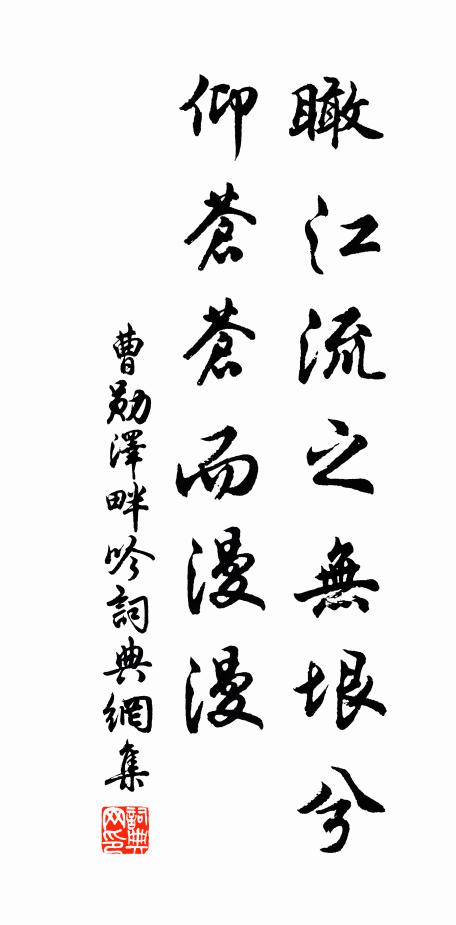 瞰江流之無垠兮
仰蒼蒼而漫漫
曹勛澤畔吟詞典網集
詞典网印